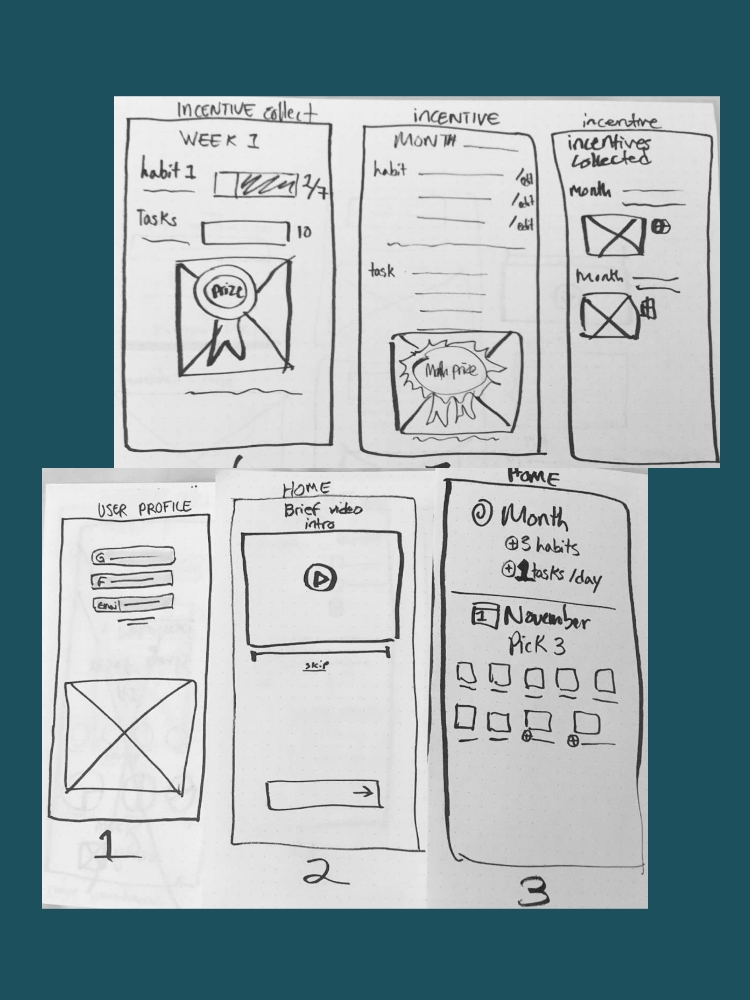 INCENTIVE collect
WEEK 1
habit 1
2/7
Tasks
10
Prize
incentive
MONTH
habit
/edit
/edit
/edit
task
Month prize
incentive
incentives
collected
Month
Month
USER PROFILE
G
F
email
1
HOME
Brief video
intro
skip
2
HOME
Month
3 habits
1 tasks/day
1 November
Pick 3
3